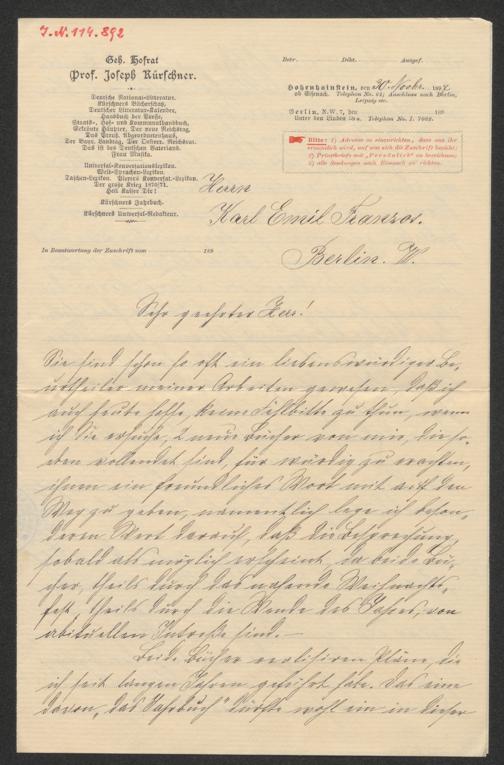 J.N. 114.892
Geh. Hofrat
Prof. Joseph Kürschner.
Deutsche National-Litteratur.
Kürschners Bücherschatz.
Deutscher Litteratur-Kalender.
Handbuch der Presse.
Staats-, Hof- und Kommunalhandbuch.
Gekrönte Häupter. Der neue Reichstag.
Das Preuß. Abgeordnetenhaus.
Der Bayr. Landtag. Der Oesterr. Reichsrat.
Das ist des Deutschen Vaterland.
Frau Musika.
Universal-Konversationslexikon.
Welt-Sprachen-Lexikon.
Taschen-Lexikon. Pierers Konversat.-Lexikon.
Der große Krieg 1870/71.
Heil Kaiser Dir!
Kürschners Jahrbuch.
Kürschners Universal-Redakteur.
Betr. Dikt. Ausgef.
Hohenhainstein, den 20 Novbr. 1897.
ob Eisenach. Telephon No. 64; Anschluss nach Berlin,
Leipzig etc.
Berlin, N.W. 7, den 189
Unter den Linden Telephon No. I.
Bitte: 1) Adresse so einzurichten, dass aus ihr
ersichtlich wird, auf was sich die Zuschrift bezieht;
2) Privatbriefe mit „Persönlich“ zu bezeichnen;
3) alle Sendungen nach Eisenach zu richten.
Herrn
Karl Emil Franzos.
Berlin. W.
In Beantwortung der Zuschrift vom 189
Sehr geehrter Herr!
Sie sind schon so oft ein liebenswürdiger Be-
urtheiler meiner Arbeiten gewesen, daß ich
auch heute hoffe, keine Fehlbitte zu thun, wenn
ich Sie ersuche, 2 neue Bücher von mir, die so-
eben vollendet sind, für würdig zu erachten,
ihnen ein freundliches Wort mit auf den
Weg zu geben, namentlich lege ich beson-
deren Wert darauf, daß die Besprechung,
sobald als möglich erscheint, da beide Bü-
cher, theils durch das nahende Weihnachts-
fest, theils durch die Wende des Jahres, von
aktuellem Interesse sind. –
Beide Bücher realisiren Pläne, die
ich seit langen Jahren gehegt habe. Das eine
davon, „das Jahrbuch“ dürfte wohl ein in dieser